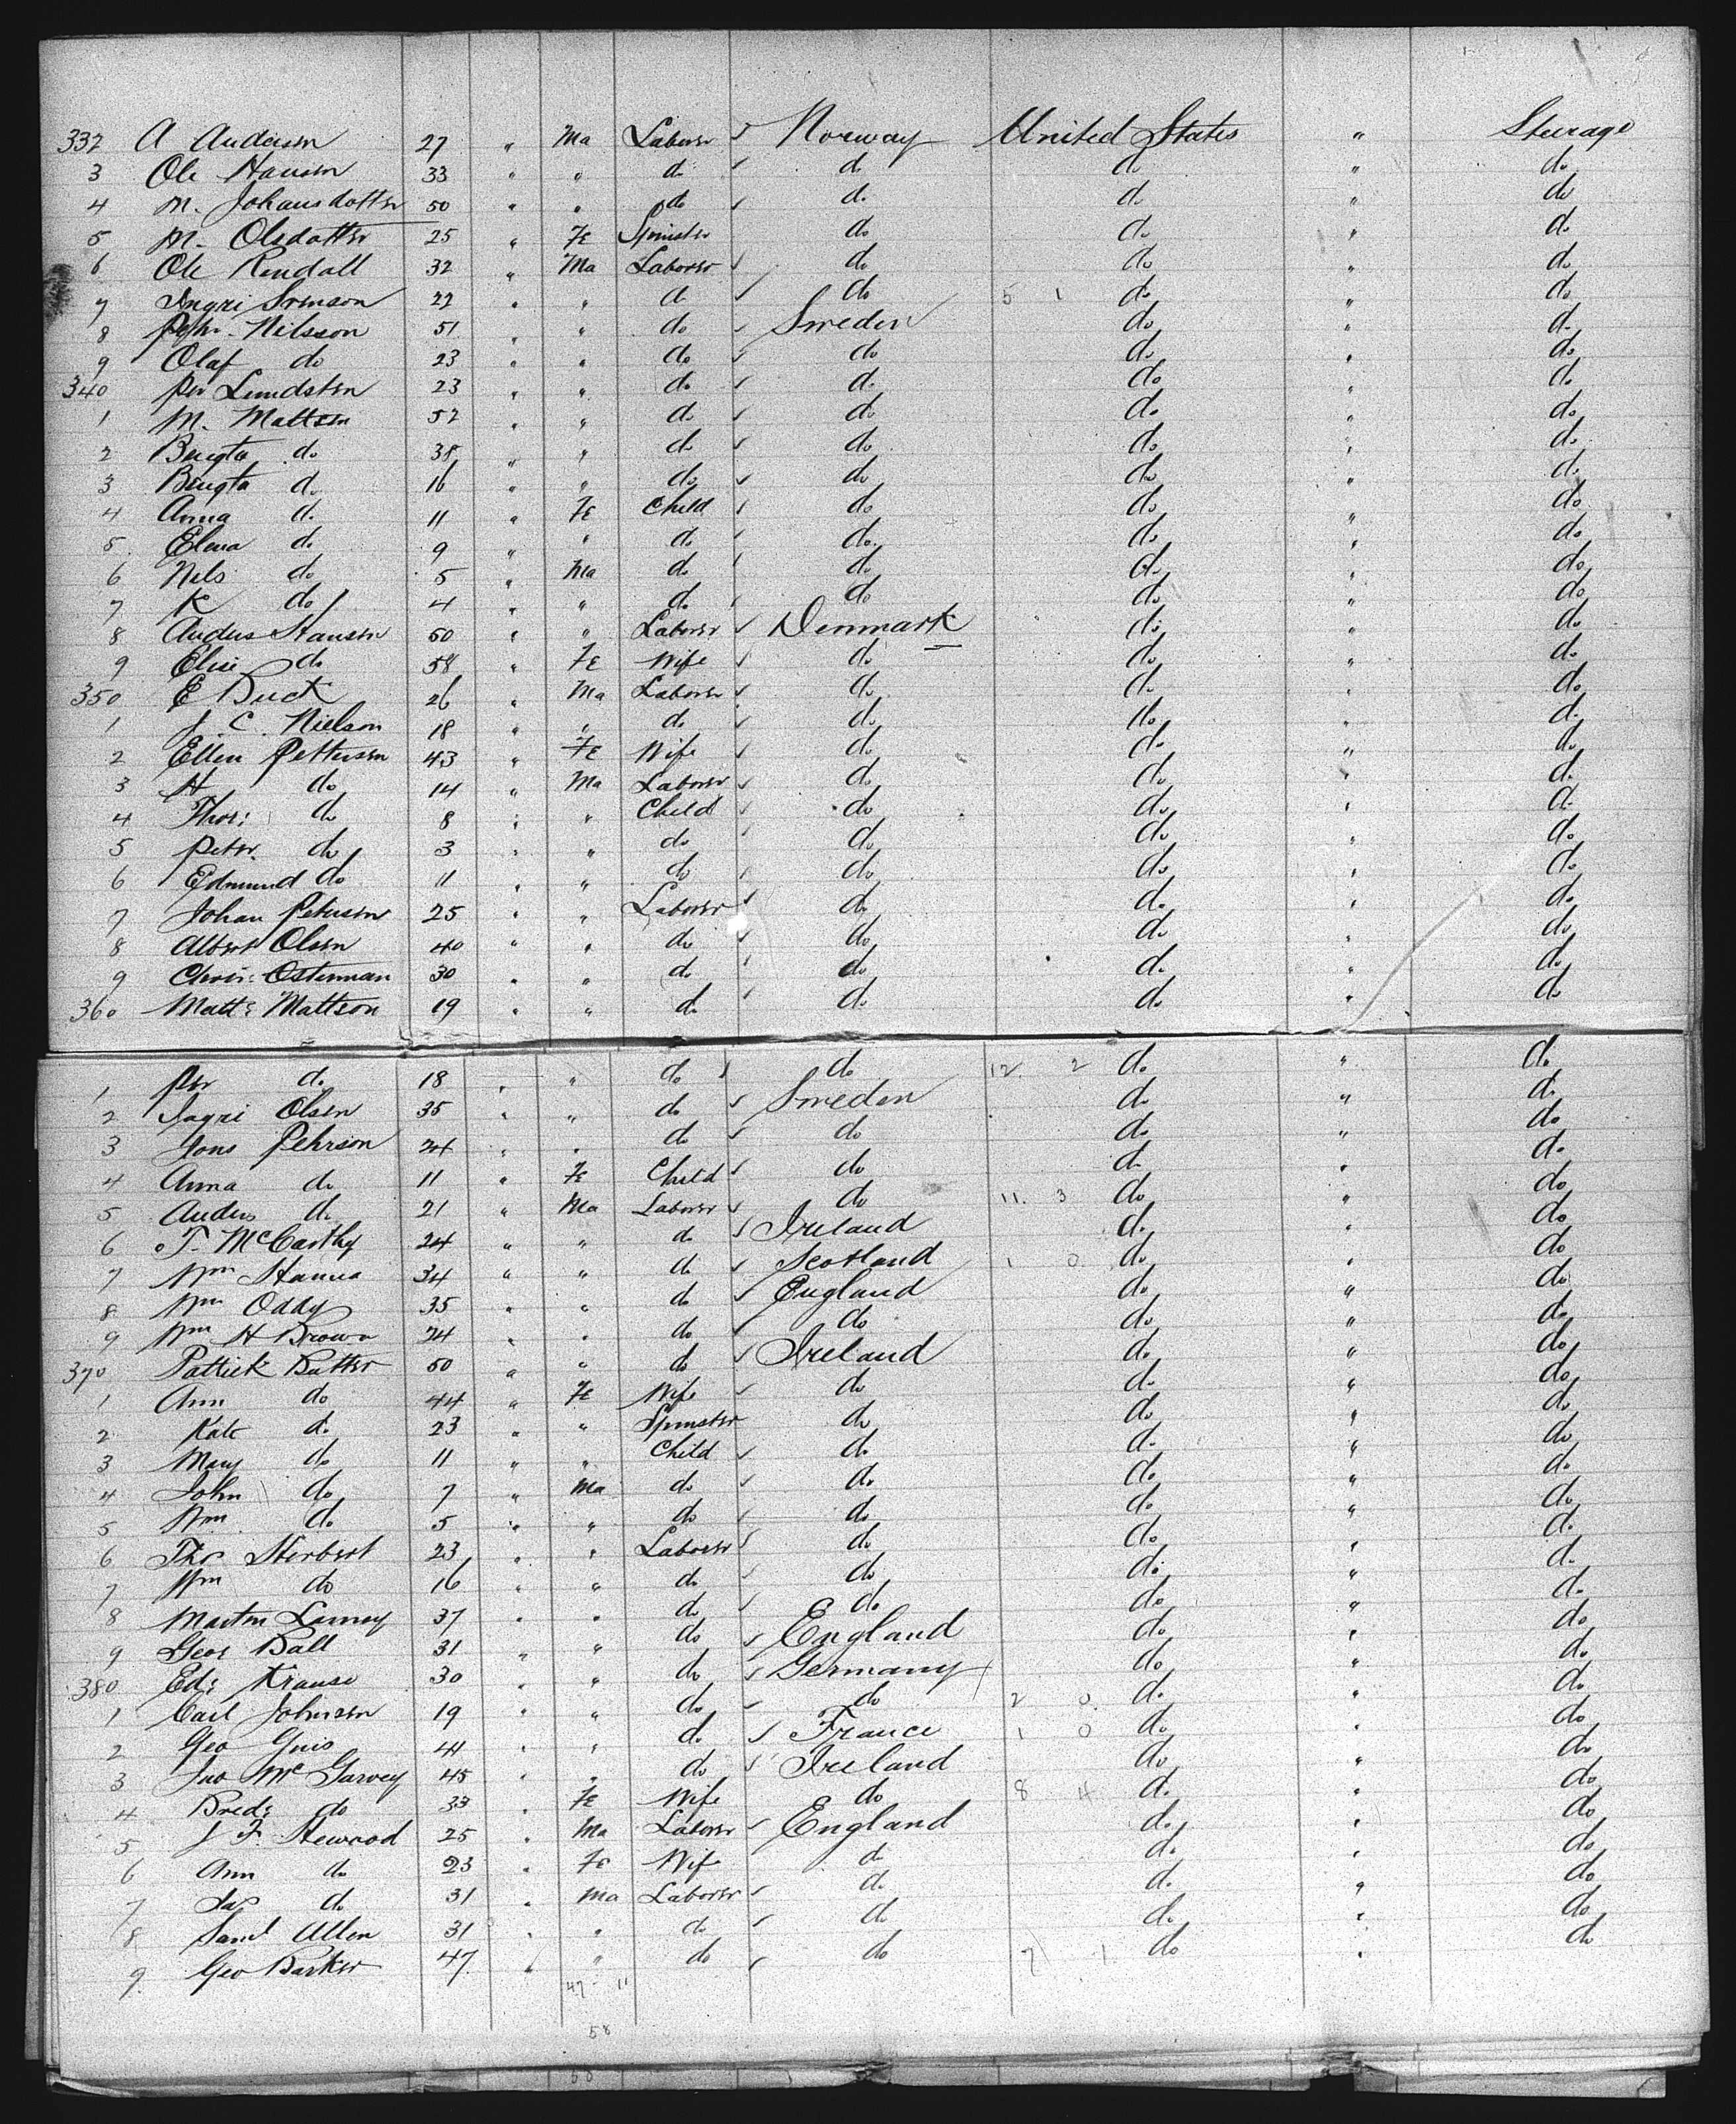 332 A Anderson 27 " Ma Laborer Norway United States " Steerage
3 Ole Hanson 33 " " do do do " do
4 M. Johansdotter 50 " " do do do " do
5 M. Olsdotter 25 " Fe Spinster do do " do
6 Ole Rendall 32 " Ma Laborer do do " do
7 Ingri Svenson 22 " " do do 5 1 do " do
8 Pehr Nilsson 51 " " do Sweden do " do
9 Olaf do 23 " " do do do " do
340 Per Lundsten 23 " " do do do " do
1 M. Mattson 52 " " do do do " do
2 Bengta do 38 " " do do do " do
3 Bengta do 16 " " do do do " do
4 Anna do 11 " Fe Child do do " do
5 Elena do 9 " " do do do " do
6 Nels do 5 " Ma do do do " do
7 K do 4 " " do do do " do
8 Anders Hansen 50 " " Laborer Denmark do " do
9 Elise do 58 " Fe Wife do do " do
350 E Buck 26 " Ma Laborer do do " do
1 J. C. Nielson 18 " " do do do " do
2 Ellen Petterson 43 " Fe Wife do do " do
3 H do 14 " Ma Laborer do do " do
4 Thos: do 8 " " Child do do " do
5 Peter do 3 " " do do do " do
6 Edmund do 11 " " do do do " do
7 Johan Peterson 25 " " Laborer do do " do
8 Albert Olsen 40 " " do do do " do
9 Chris: Osterman 30 " " do do do " do
360 Matt: Mattson 19 " " do do do " do
1 Per do 18 " " do do 12 2 do " do
2 Ingri Olsen 35 " " do Sweden do " do
3 Jons Pehrson 24 " " do do do " do
4 Anna do 11 " Fe Child do do " do
5 Anders do 21 " Ma Laborer do 11 3 do " do
6 T. McCarthy 24 " " do Ireland do " do
7 Wm Hanna 34 " " do Scotland 1 0 do " do
8 Wm Oddy 35 " " do England do " do
9 Wm H Brown 24 " " do do do " do
370 Patrick Butter 50 " " do Ireland do " do
1 Ann do 44 " Fe Wife do do " do
2 Kate do 23 " " Spinster do do " do
3 Mary do 11 " " Child do do " do
4 John do 7 " Ma do do do " do
5 Wm do 5 " " do do do " do
6 Thos Herbert 23 " " Laborer do do " do
7 Wm do 16 " " do do do " do
8 Martin Lamey 37 " " do do do " do
9 Geor Ball 31 " " do England do " do
380 Ed: Krause 30 " " do Germany do " do
1 Carl Johnson 19 " " do do 2 0 do " do
2 Geo Guis 41 " " do France 1 0 do " do
3 Jno McGarvey 45 " " do Ireland do " do
4 Bred: do 33 " Fe Wife do 8 4 do " do
5 J F. Hewood 25 " Ma Laborer England do " do
6 Ann do 23 " Fe Wife do do " do
7 Jas do 31 " Ma Laborer do do " do
8 Saml Allen 31 " " do do do " do
9 Geo Barker 47 " " do do 7 1 do " do
47 - 11
58
58